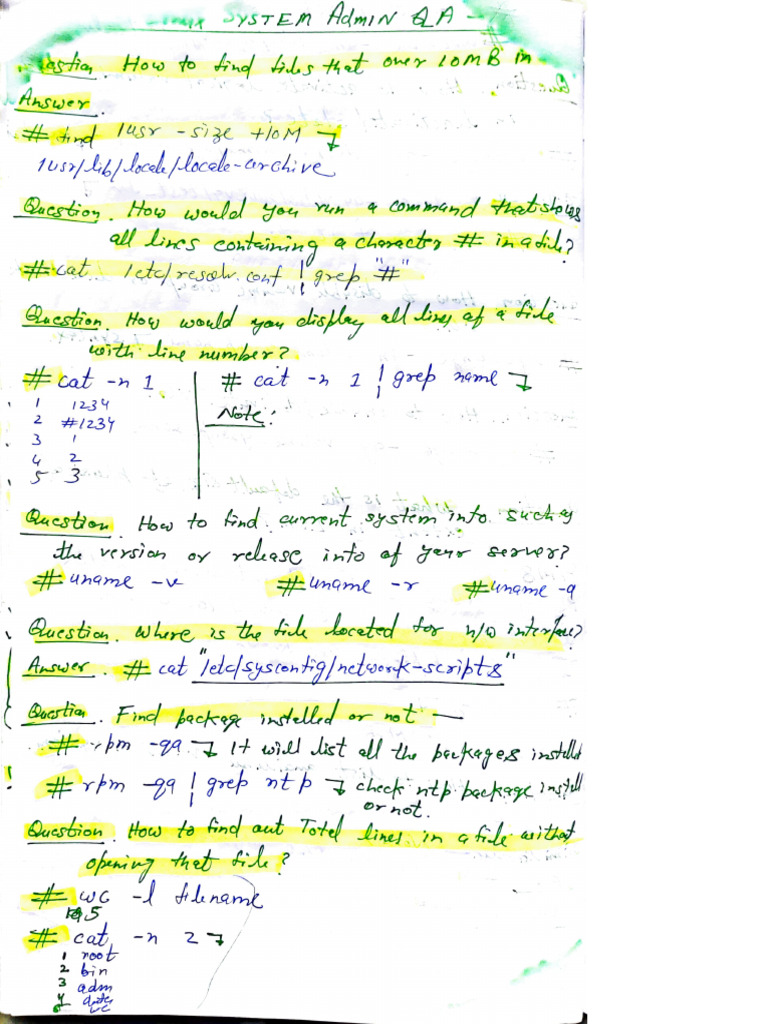 SYSTEM Admin QA -
Question. How to find files that over 10MB in
Answer.
# find /usr -size +10M
/usr/lib/locale/locale-archive
Question. How would you run a command that shows
all lines containing a character # in a file?
# cat /etc/resolv.conf | grep "#"
Question. How would you display all lines of a file
with line number?
# cat -n 1
1 1234
2 #1234
3 1
4 2
5 3
# cat -n 1 | grep name
Note:
Question. How to find current system info such as
the version or release info of your server?
# uname -v # uname -r # uname -a
Question. Where is the file located for n/w interface?
Answer. # cat "/etc/sysconfig/network-scripts"
Question. Find package installed or not —
# rpm -qa It will list all the packages installed
# rpm -qa | grep ntp check ntp package install
or not.
Question. How to find out Totel lines in a file without
opening that file?
# wc -l filename
5
# cat -n 2
1 root
2 bin
3 adm
4